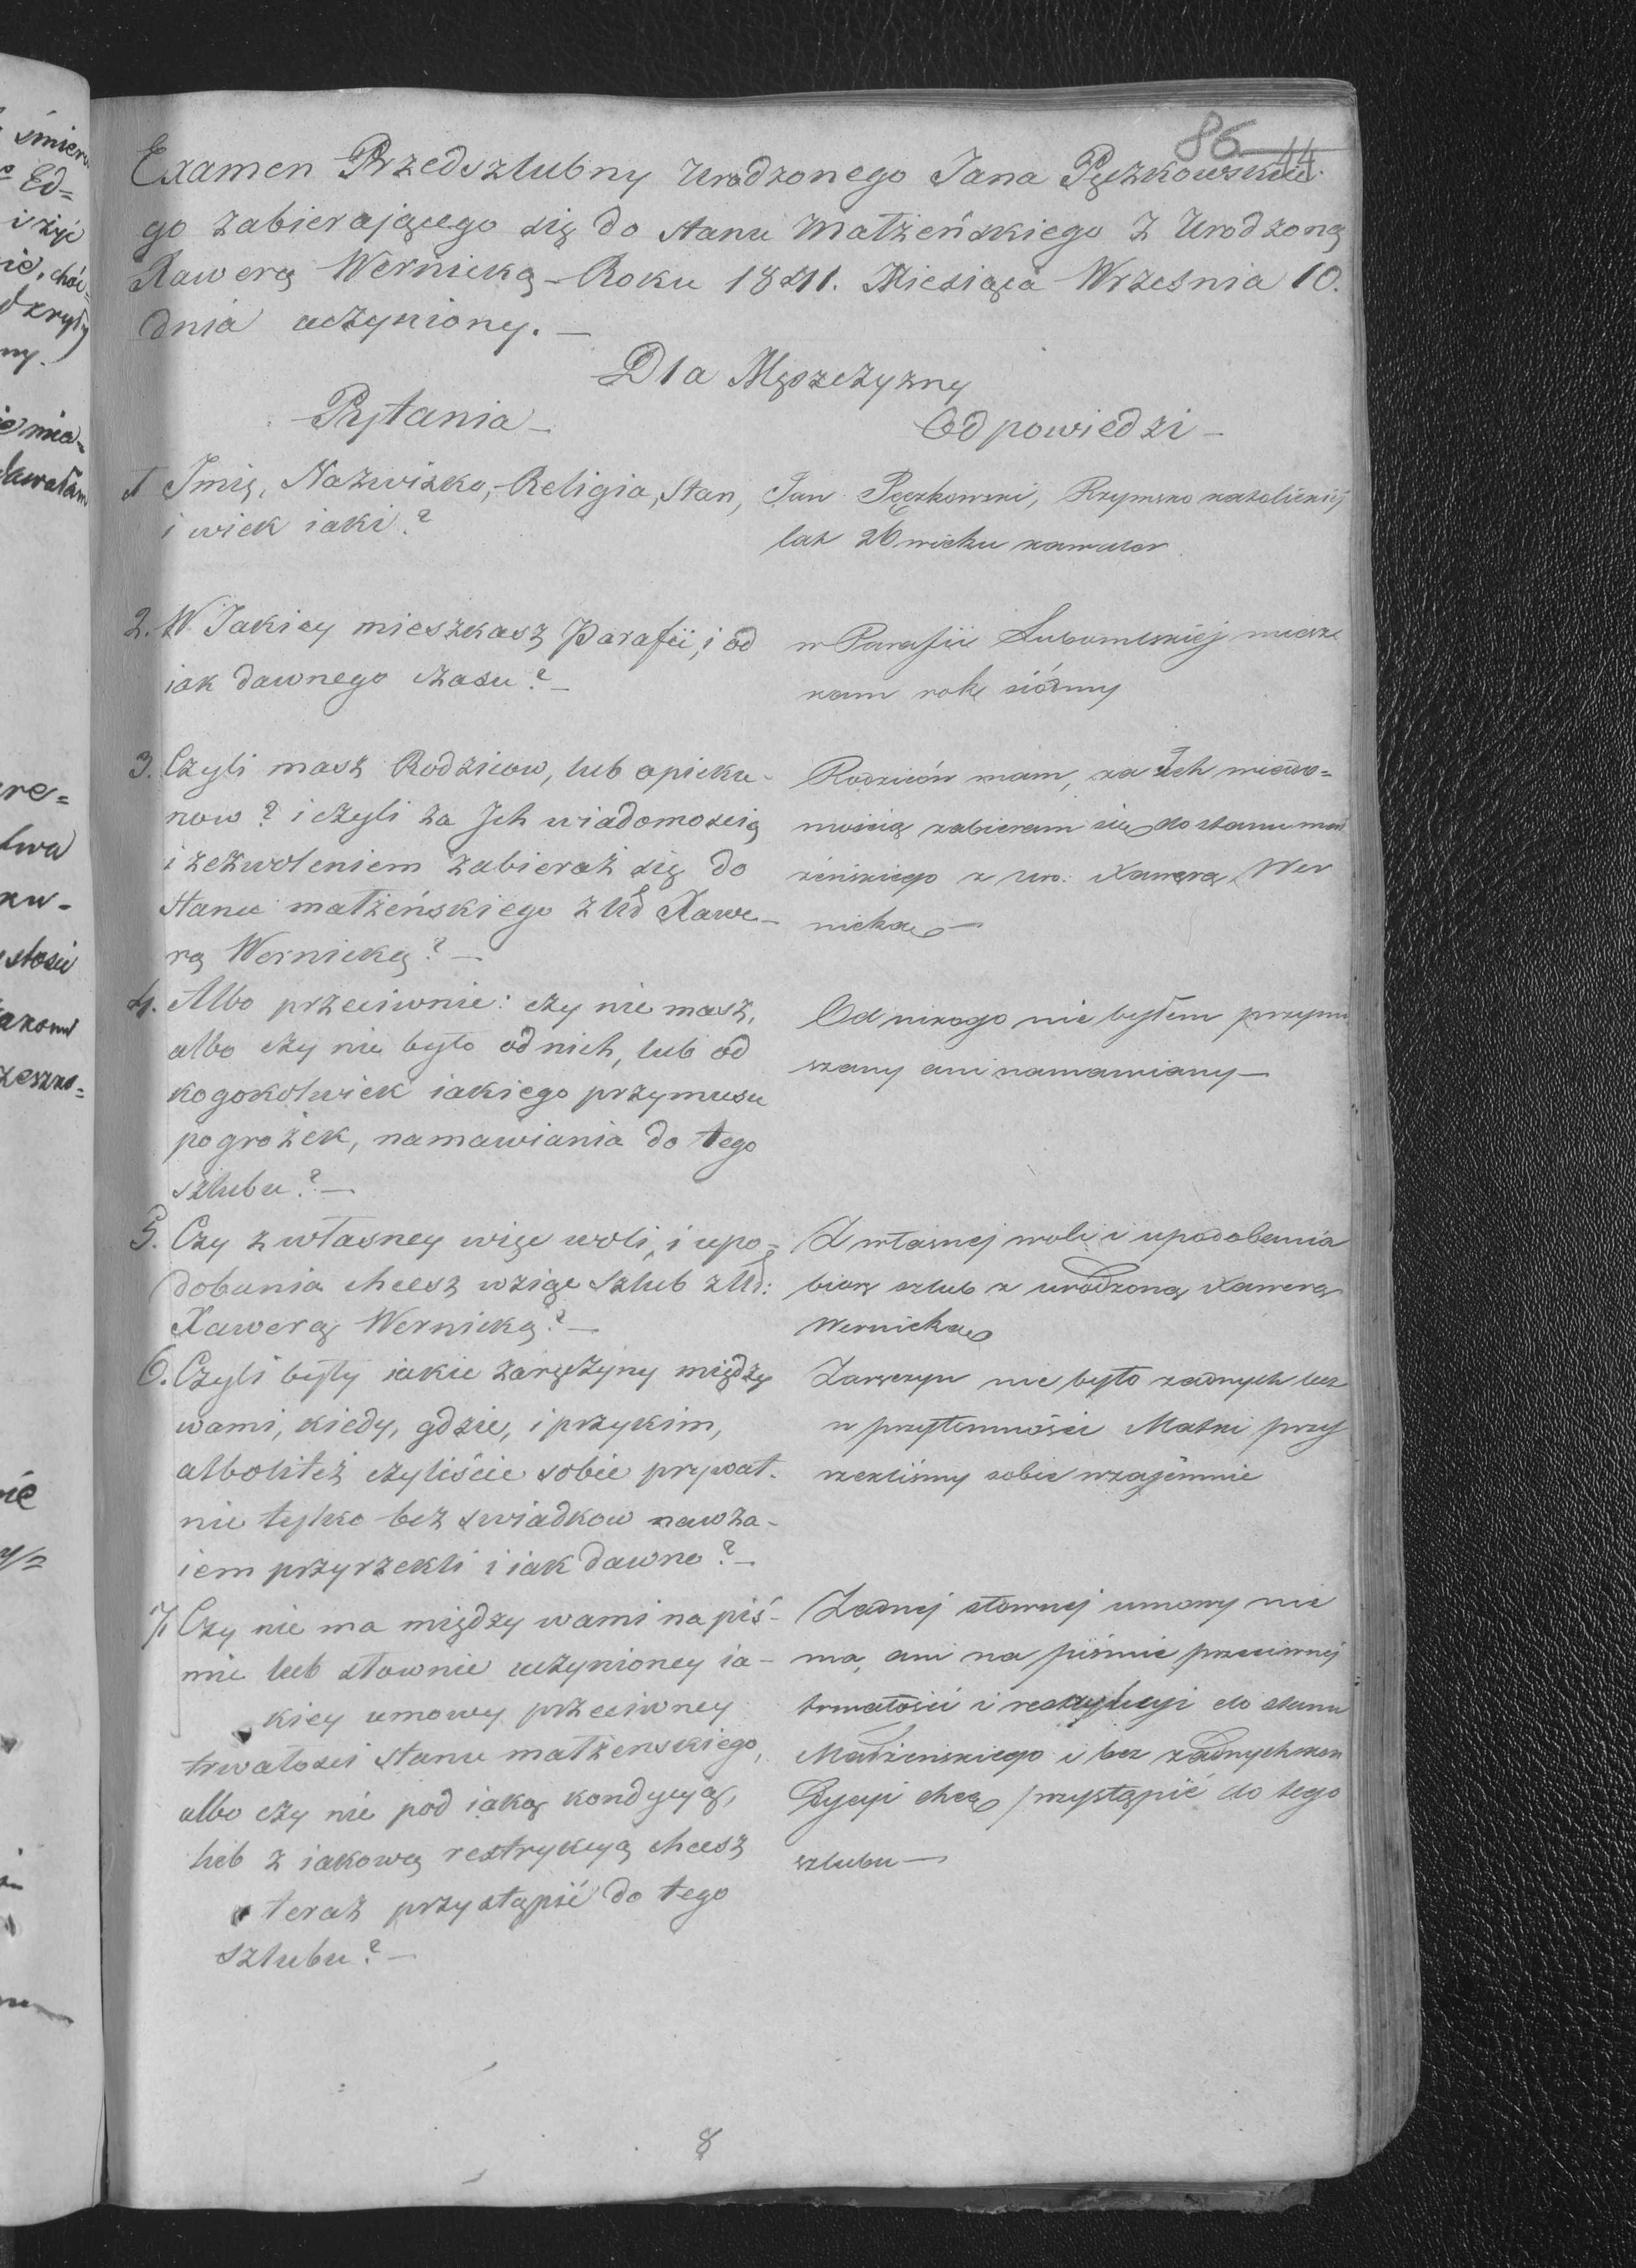 86 44
Examen Przedszlubny Urodzonego Jana Pęczkowskie
go zabierającego się do stanu Małżeńskiego z Urodzoną
Xawerą Wernicką - Roku 1841. Miesiąca Września 10.
dnia uczyniony. —
Dla Mężczyzny
Pytania —
Odpowiedzi —
1 Imię, Nazwisko, Religia, Stan,
i wiek iaki?
Jan Pęczkowski, Rzymsko katolickiéj
lat 26 wieku kawaler
2. W Jakiey mieszkasz Parafii, i od
iak dawnego czasu? —
w Parafii Lubomlskiéj miesz
kam rok siódmy
3. Czyli masz Rodzicow, lub opieku-
now? i czyli za Jch wiadomoscią
i zezwoleniem zabierasz się do
Stanu małżeńskiego z Ud Xawe-
rą Wernicką? —
Rodziców mam, za Ich wiado=
mością zabieram się do stanu mał
żeńskiego z uro. Xawerą Wer
nicką —
4. Albo przeciwnie: czy nie masz,
albo czy nie było od nich, lub od
kogokolwiek iakiego przymusu
pogrożek, namawiania do tego
szlubu? —
Od nikogo nie byłem przymu
szany ani namawiany —
5. Czy z własney więc woli, i upo-
dobania chcesz wziąć Szlub z Ud:
Xawerą Wernicką? —
Z własnej woli i upodobania
biorę szlub z urodzoną Xawerą
Wernicką
6. Czyli były iakie zaręczyny między
wami, kiedy, gdzie, i przykim,
albolitéż czyliście sobie prywat-
nie tylko bez swiadkow nawza-
iem przyrzekli i iak dawno? —
Zaręczyn nie było żadnych lecz
w przytomności Matki przy
rzekliśmy sobie wzajemnie
7. Czy nie ma między wami na piś-
mie lub słownie uczynioney ia-
kiey umowy przeciwney
trwałosci stanu małżenskiego,
albo czy nie pod iaką kondycyą,
lub z iakową restrykcyą chcesz
teraz przystąpić do tego
szlubu? —
Żadnej słownej umowy nie
ma, ani na piśmie przeciwnej
trwałości i restrykcyi do stanu
Małżeńskiego i bez żadnych kon
dycyi chcę przystąpić do tego
szlubu —
8